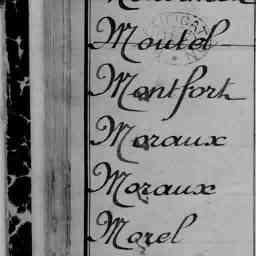 Moutel
Montfort
Moraux
Moraux
Morel